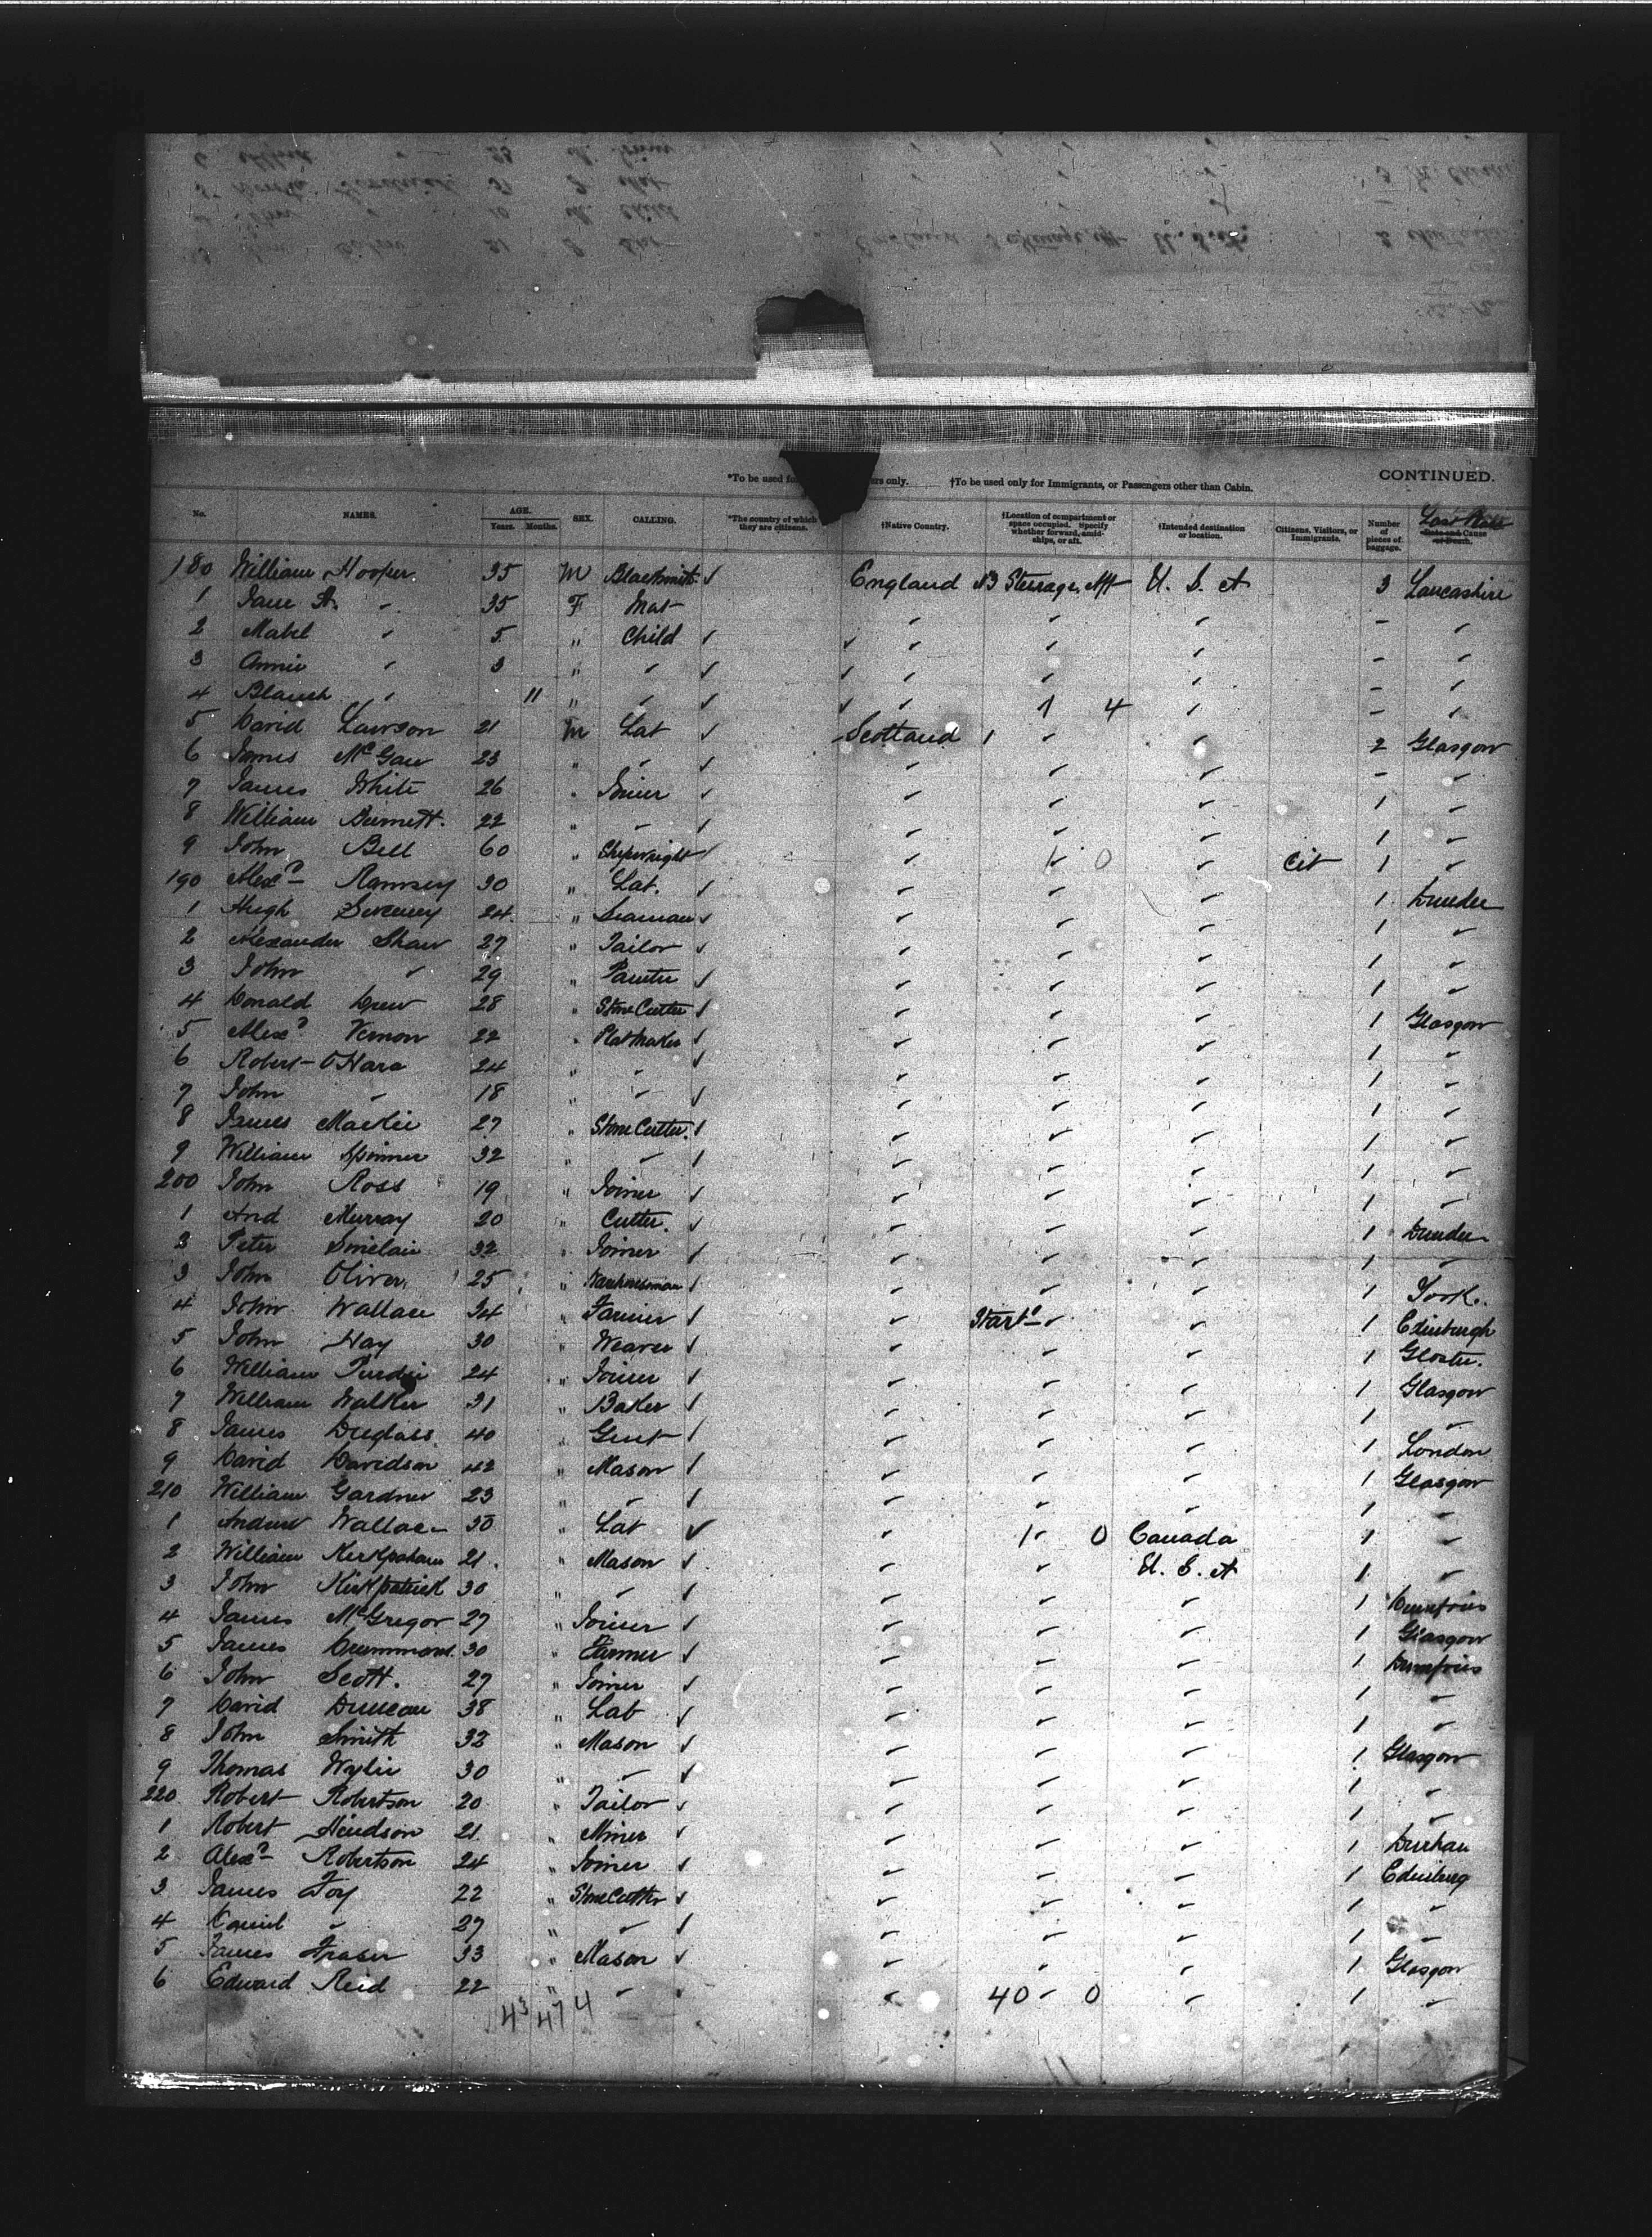 CONTINUED.
*To be used fo ers only. †To be used only for Immigrants, or Passengers other than Cabin.
No. NAMES. AGE. Years. Months. SEX. CALLING. *The country of which they are citizens. †Native Country. †Location of compartment or space occupied. Specify whether forward, amidships, or aft. †Intended destination or location. Citizens, Visitors, or Immigrants. Number of pieces of baggage. Date and Cause of Death.
180 William Hooper 35 M Blacksmith ✓ England Steerage, Aft U. S. A 3 Lancashire
1 Jane A. " 35 F Mat
2 Mabel " 5 " Child ✓
3 Annie " 3 " " ✓
4 Blanch " 11 " " ✓ 1 4
5 David Lawson 21 M Lab ✓ Scotland 1 2 Glasgow
6 James McGaw 23 " " ✓
7 James White 26 " Joiner ✓ 1
8 William Burnett. 22 " " ✓ 1
9 John Bell 60 " Shipwright ✓ 1 0 Cit 1
190 Alexr Ramsey 30 " Lab. ✓ 1 Dundee
1 Hugh Sweeney 24 " Seaman ✓ 1
2 Alexander Shaw 27 " Tailor ✓ 1
3 John " 29 " Painter ✓ 1
4 Donald Drew 28 " Stone Cutter ✓ 1 Glasgow
5 Alexr Vernon 22 " ✓ 1
6 Robert O'Hara 24 " " ✓ 1
7 John " 18 " " ✓ 1
8 James Mackie 27 " Stone Cutter. ✓ 1
9 William Spinner 32 " " ✓ 1
200 John Ross 19 " Joiner ✓ 1
1 And Murray 20 " Cutter. ✓ 1 Dundee
2 Peter Sinclair 32 " Joiner ✓ 1
3 John Oliver 25 " Warehouseman ✓ 1 York.
4 John Wallace 34 " Farmer ✓ Starbd 1 Edinburgh
5 John Hay 30 " Weaver ✓ 1 Gloster.
6 William Purdie 24 " Joiner ✓ 1 Glasgow
7 William Walker 31 " Baker ✓ 1
8 James Duglass 40 " Gent ✓ 1 London
9 David Davidson 42 " Mason ✓ 1 Glasgow
210 William Gardner 23 " " ✓ 1
1 Andrew Wallace 30 " Lab ✓ 1 0 Canada 1
2 William 21 " Mason ✓ U. S. A 1
3 John Kirkpatrick 30 " " ✓ 1 Dumfries
4 James McGregor 27 " Joiner ✓ 1 Glasgow
5 James Drummond. 30 " Farmer ✓ 1 Dumfries
6 John Scott. 27 " Joiner ✓ 1
7 David Duncan 38 " Lab ✓ 1
8 John Smith 32 " Mason ✓ 1 Glasgow
9 Thomas Wylie 30 " " ✓ 1
220 Robert Robertson 20 " Tailor ✓ 1
1 Robert Hindson 21 " Miner ✓ 1 Durham
2 Alexr Robertson 24 " Joiner ✓ 1 Edinburg
3 James Foy 22 " Stone Cutter ✓ 1
4 Daniel " 27 " " ✓ 1
5 James Fraser 33 " Mason ✓ 1 Glasgow
6 Edward Reid 22 " " 40 0 1
43 47 4